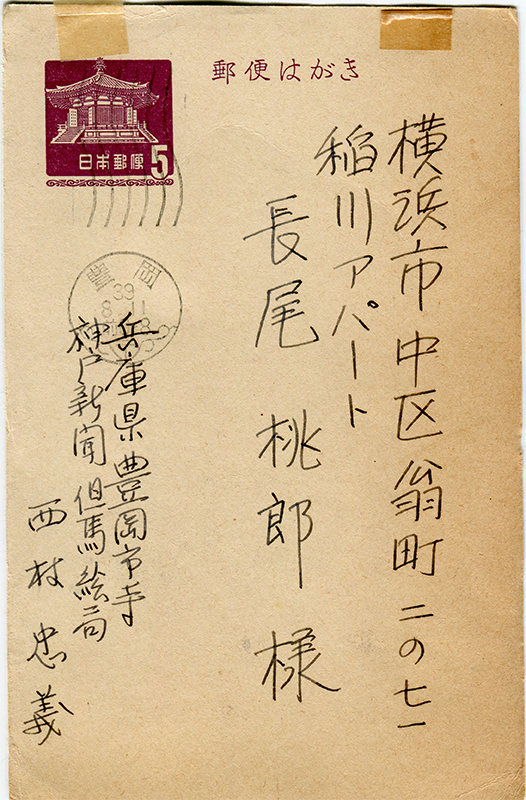 郵便はがき
日本郵便 5
横浜市中区翁町二の七一
稲川アパート
長尾桃郎様
豊岡
39
8 11
兵庫県豊岡市寺
神戸新聞但馬総局
西村忠義